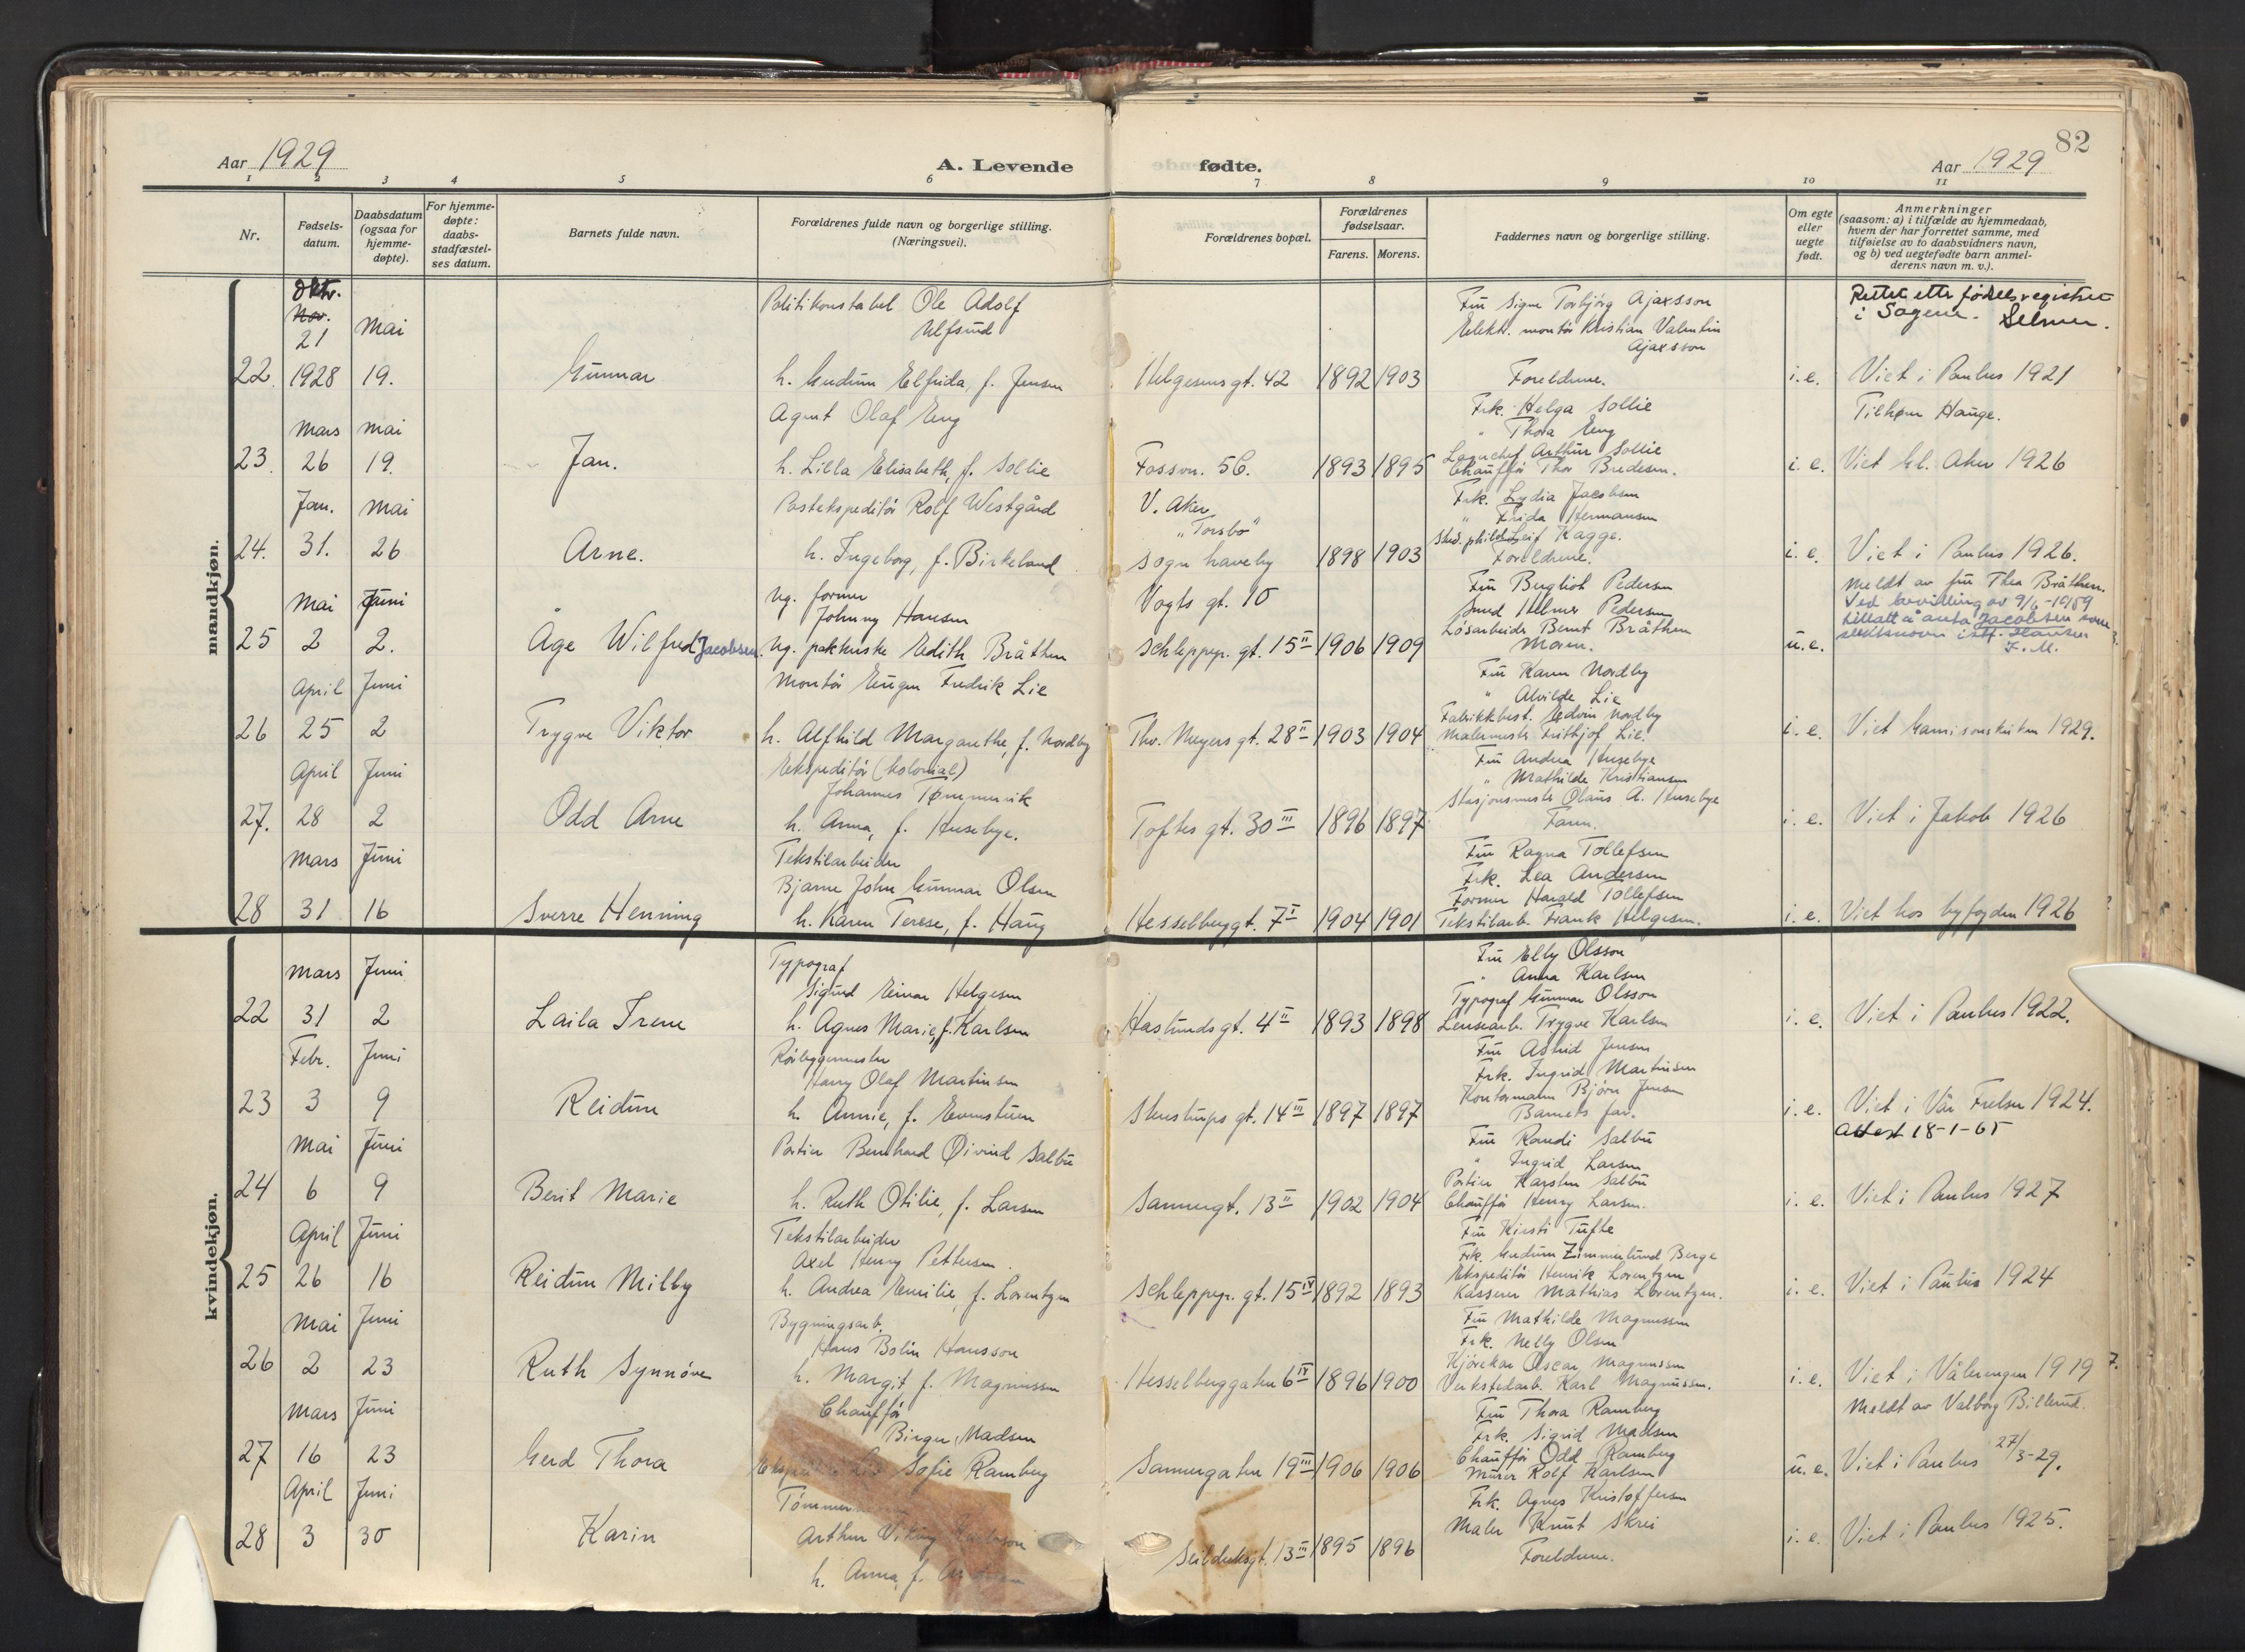 82
Aar 1929
A. Levende fødte.
Aar 1929
1 2 3 4 5 6 7 8 9 10 11
Nr.
Fødsels-
datum.
Daabsdatum
(ogsaa for
hjemme-
døpte).
For hjemme-
døpte:
daabs-
stadfæstel-
ses datum.
Barnets fulde navn.
Forældrenes fulde navn og borgerlige stilling.
(Næringsvei).
Forældrenes bopæl.
Forældrenes
fødselsaar.
Farens. Morens.
Faddernes navn og borgerlige stilling.
Om egte
eller
uegte
født.
Anmerkninger
(saasom: a) i tilfælde av hjemmedaab,
hvem der har forrettet samme, med
tilføielse av to daabsvidners navn,
og b) ved uegtefødte barn anmel-
derens navn m. v.).
mandkjøn.
Oktr.
Nov.
21
1928
22.
Mai
19.
Gunnar
Politikonstabel Ole Adolf
Ulfsrud
h. Gudrun Elfrida, f. Jensen
Helgesens gt. 42
1892 1903
Fru Signe Torbjörg Ajaxsson
Elektr. montör Kristian Valentin
Ajaxsson
Foreldrene.
i. e.
Rettet efter fødselsregistret
i Sagene. Selmer.
Viet i Paulus 1921
23.
Mars
26
Mai
19.
Jan.
Agent Olaf Eng
h. Lilla Elisabeth, f. Sollie
Fossvn. 5 C.
1893 1895
Frk. Helga Sollie
" Thora Eng
Lagerchef Arthur Sollie
Chauffør Thor Bredesen.
i. e.
Tilhører Hauge.
Viet Gl. Aker 1926
24.
Jan.
31.
Mai
26
Arne.
Postekspeditör Rolf Westgård
h. Ingeborg, f. Birkeland
V. Aker
"Torsbo"
Sogn haveby
1898 1903
Frk. Lydia Jacobsen
" Frida Hermansen
Stud. philol. Leif Kagge.
Foreldrene.
i. e.
Viet i Paulus 1926.
25
Mai
2
Juni
2.
Åge Wilfred Jacobsen.
Ug. former
Johnny Hansen
Ug. pakkerske Edith Bråthen
Vogts gt. 10
Schleppegr. gt. 15 II
1906 1909
Fru Bergliot Pedersen
Smed Helmer Pedersen
Løsarbeider Bernt Bråthen
Moren.
u. e.
Meldt av fru Thea Bråthen.
Ved bevilling av 9/6-1959
tillatt å anta Jacobsen som
slektsnavn istf. Hansen
F. M.
26
April
25
Juni
2
Trygve Viktor
Montör Eugen Fredrik Lie
h. Alfhild Margarethe, f. Nordby
Thv. Meyers gt. 28 II
1903 1904
Fru Karen Nordby
" Alvilde Lie
Fabrikkbest. Edvin Nordby
Malermester Frithjof Lie.
i. e.
Viet Garnisonskirken 1929.
27.
April
28
Juni
2
Odd Arne
Ekspeditör (kolonial)
Johannes Tømmervik
h. Anna, f. Husebye.
Toftes gt. 30 III
1896 1897
Fru Andrea Husebye
" Mathilde Kristiansen
Stasjonsmester Olaus A. Husebye
Faren.
i. e.
Viet i Jakob 1926
28
Mars
31
Juni
16
Sverre Henning
Tekstilarbeider
Bjarne John Gunnar Olsen
h. Karen Terese, f. Haug
Hesselberg gt. 7 I
1904 1901
Fru Ragna Tollefsen
Frk. Lea Andersen
Former Harald Tollefsen
Tekstilarb. Frank Helgesen.
i. e.
Viet hos byfogden 1926
kvindekjøn.
22
Mars
31
Juni
2
Laila Irene
Typograf
Sigurd Einar Helgesen
h. Agnes Marie, f. Karlsen
Haslunds gt. 4 II
1893 1898
Fru Elly Olsson
" Anna Karlsen
Typograf Gunnar Olsson
Lensearb. Trygve Karlsen
i. e.
Viet i Paulus 1922.
23
Febr.
3
Juni
9
Reidun
Rörleggermester
Harry Olaf Martinsen
h. Annie, f. Evenstuen
Steenstrups gt. 14 III
1897 1897
Fru Astrid Jensen
Frk. Ingrid Martinsen
Kontormann Bjørn Jensen
Barnets far.
i. e.
Viet i Vår Frelser 1924.
Attest 18-1-65
24
Mai
6
Juni
9
Berit Marie
Portier Bernhard Øivind Salbu
h. Ruth Otilie, f. Larsen
Sannergt. 13 II
1902 1904
Fru Randi Salbu
" Ingrid Larsen
Portier Karsten Salbu
Chauffør Henry Larsen.
i. e.
Viet i Paulus 1927
25
April
26
Juni
16
Reidun Milly
Tekstilarbeider
Axel Henry Pettersen.
h. Andrea Emilie, f. Lorentzen
Schleppegr. gt. 15 IV
1892 1893
Fru Kirsti Tufte
Frk. Gudrun Zimmerlund Berge
Ekspeditör Henrik Lorentzen
Kasserer Mathias Lorentzen.
i. e.
Viet i Paulus 1924
26
Mai
2
Juni
23
Ruth Synnöve
Bygningsarb.
Hans Bolin Hansson
h. Margit f. Magnussen
Hesselberggaten 6 IV
1896 1900
Fru Mathilde Magnussen
Frk. Nelly Olsen
Kjörekar Oscar Magnussen
Verkstedarb. Karl Magnussen.
i. e.
Viet i Vålerengen 1919
27
Mars
16
Juni
23
Gerd Thora
Chauffør
Birger Madsen
Sofie Ramberg
Sannergaten 19 III
1906 1906
Fru Thora Ramberg
Frk. Sigrid Madsen
Chauffør Odd Ramberg
Murer Rolf Karlsen
u. e.
Meldt av Valborg Billerud.
Viet i Paulus 27/3-29.
28
April
3
Juni
30
Karin
Arthur Viking
h. Anna, f.
Seilduksgt. 13 III
1895 1896
Frk. Agnes Kristoffersen
Maler Knut Skrei
Foreldrene.
i. e.
Viet i Paulus 1925.